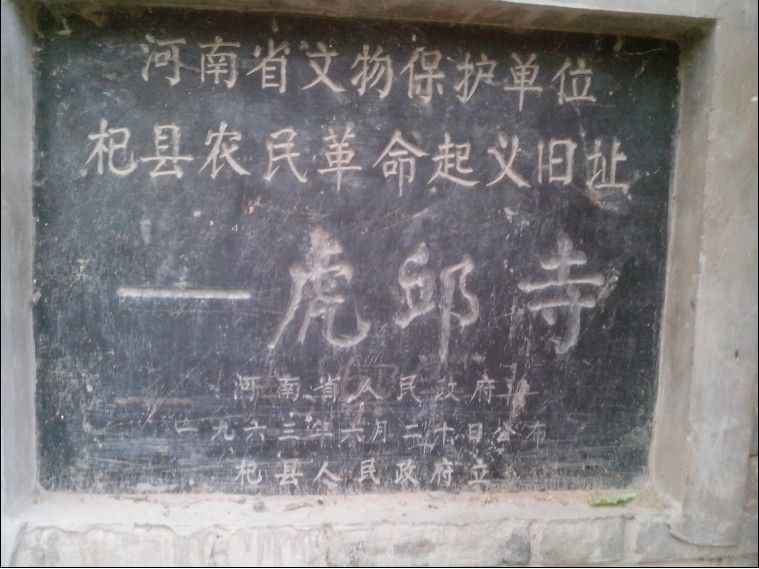 河南省文物保护单位
杞县农民革命起义旧址
——虎邱寺
河南省人民政府
一九六三年六月二十日公布
杞县人民政府立